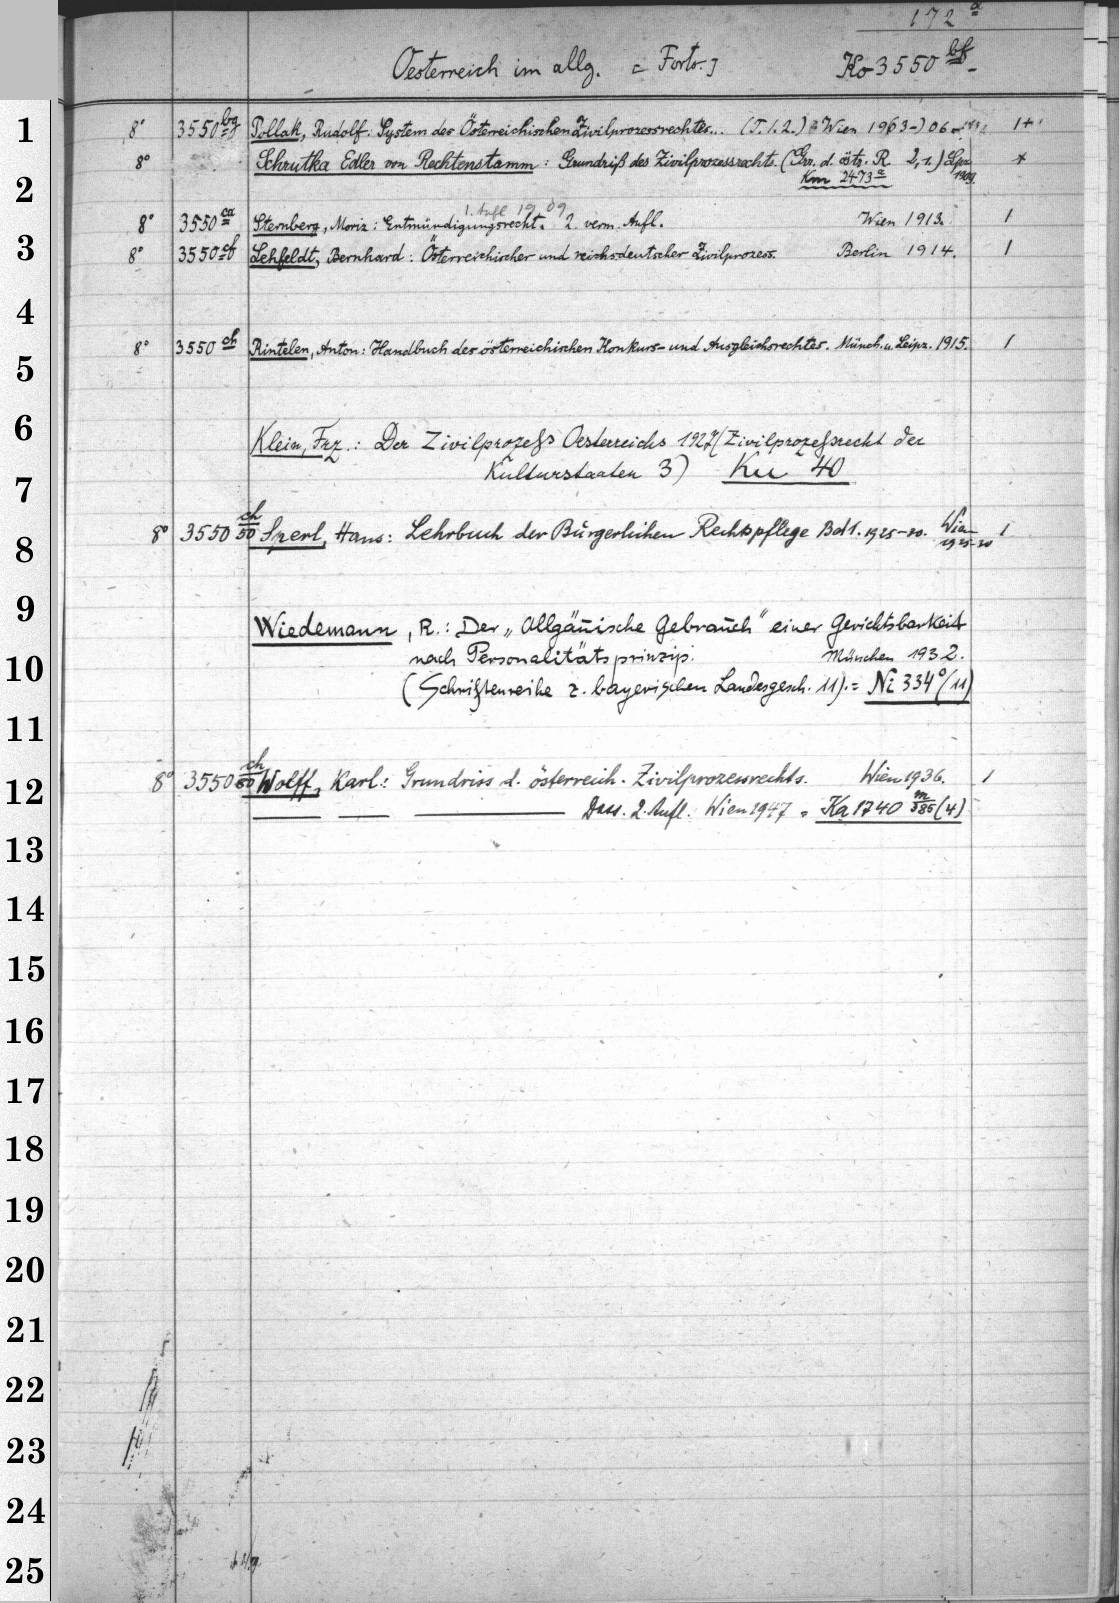 172 a
Oesterreich im allg. [Forts.] Ko 3550 bf
1 8° 3550 bg Pollak, Rudolf: System des Österreichischen Zivilprozessrechtes... (T. 1. 2.) Wien 1903-06 1+
8° Schrutka Edler von Rechtenstamm: Grundriß des Zivilprozessrechts. (Grr. d. östr. R. 2,1.) Lpz. 1909. *
2 Km 2473 a
1. Aufl. 1909
8° 3550 ca Sternberg, Moriz: Entmündigungsrecht. 2. verm. Aufl. Wien 1913. 1
3 8° 3550 cb Lehfeldt, Bernhard: Österreichischer und reichsdeutscher Zivilprozess. Berlin 1914. 1
4
8° 3550 ch Rintelen, Anton: Handbuch des österreichischen Konkurs- und Ausgleichsrechtes. Münch. u. Leipz. 1915. 1
5
6
Klein, Frz.: Der Zivilprozeß Oesterreichs 1927 (Zivilprozeßrecht der
Kulturstaaten 3) Ku 40
7
8° 3550 ch/50 Sperl, Hans: Lehrbuch der Bürgerlichen Rechtspflege Bd 1. 1925-30. Wien 1925-30 1
8
9
Wiedemann, R.: Der „Allgäuische Gebrauch" einer Gerichtsbarkeit
nach Personalitätsprinzip. München 1932.
10 (Schriftenreihe z. bayerischen Landesgesch. 11). = Ni 334°/(11)
11
8° 3550 ch/80 Wolff, Karl: Grundriss d. österreich. Zivilprozessrechts. Wien 1936. 1
12
— — — Dass. 2. Aufl. Wien 1947 = Ka 1740 m/385 (4)
13
14
15
16
17
18
19
20
21
22
23
24
25